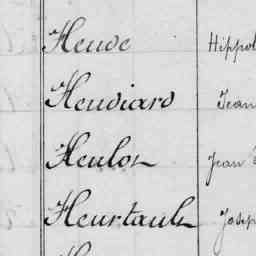 Heude Hippol
Heudiard Jean
Heulot Jean
Heurtault Josep